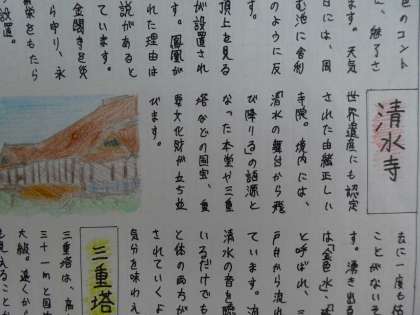 色のコント
に、魅了さ
ます。天気
日には、周
む池に舎利
のように反
す。
頂上を見る
が設置され
す。鳳凰が
れた理由は
説があると
ています。
金閣寺を災
ら守り、永
栄をもたら
設置。
清水寺
世界遺産にも認定
された由緒正しい
寺院。境内には、
「清水の舞台から飛
び降りる」の語源と
なった本堂や三重
塔などの国宝、重
要文化財が立ち並
びます。
去に一度も枯
ことがないそ
す。湧き出る
は「金色水」、延
と呼ばれ、三
戸井から流れ
ています。流
清水の音を聴
いるだけでも
と体の両方が
されていくよ
気分を味わえ
三重塔
三重塔は、高
三十一mと国内
大級。遠くから
も見えることか